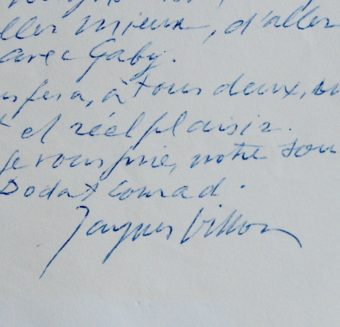 aller mieux, d'aller
avec Gaby.
fera, à tous deux, un
et réel plaisir.
je vous prie, notre
Doda Conrad.
Jacques Villon